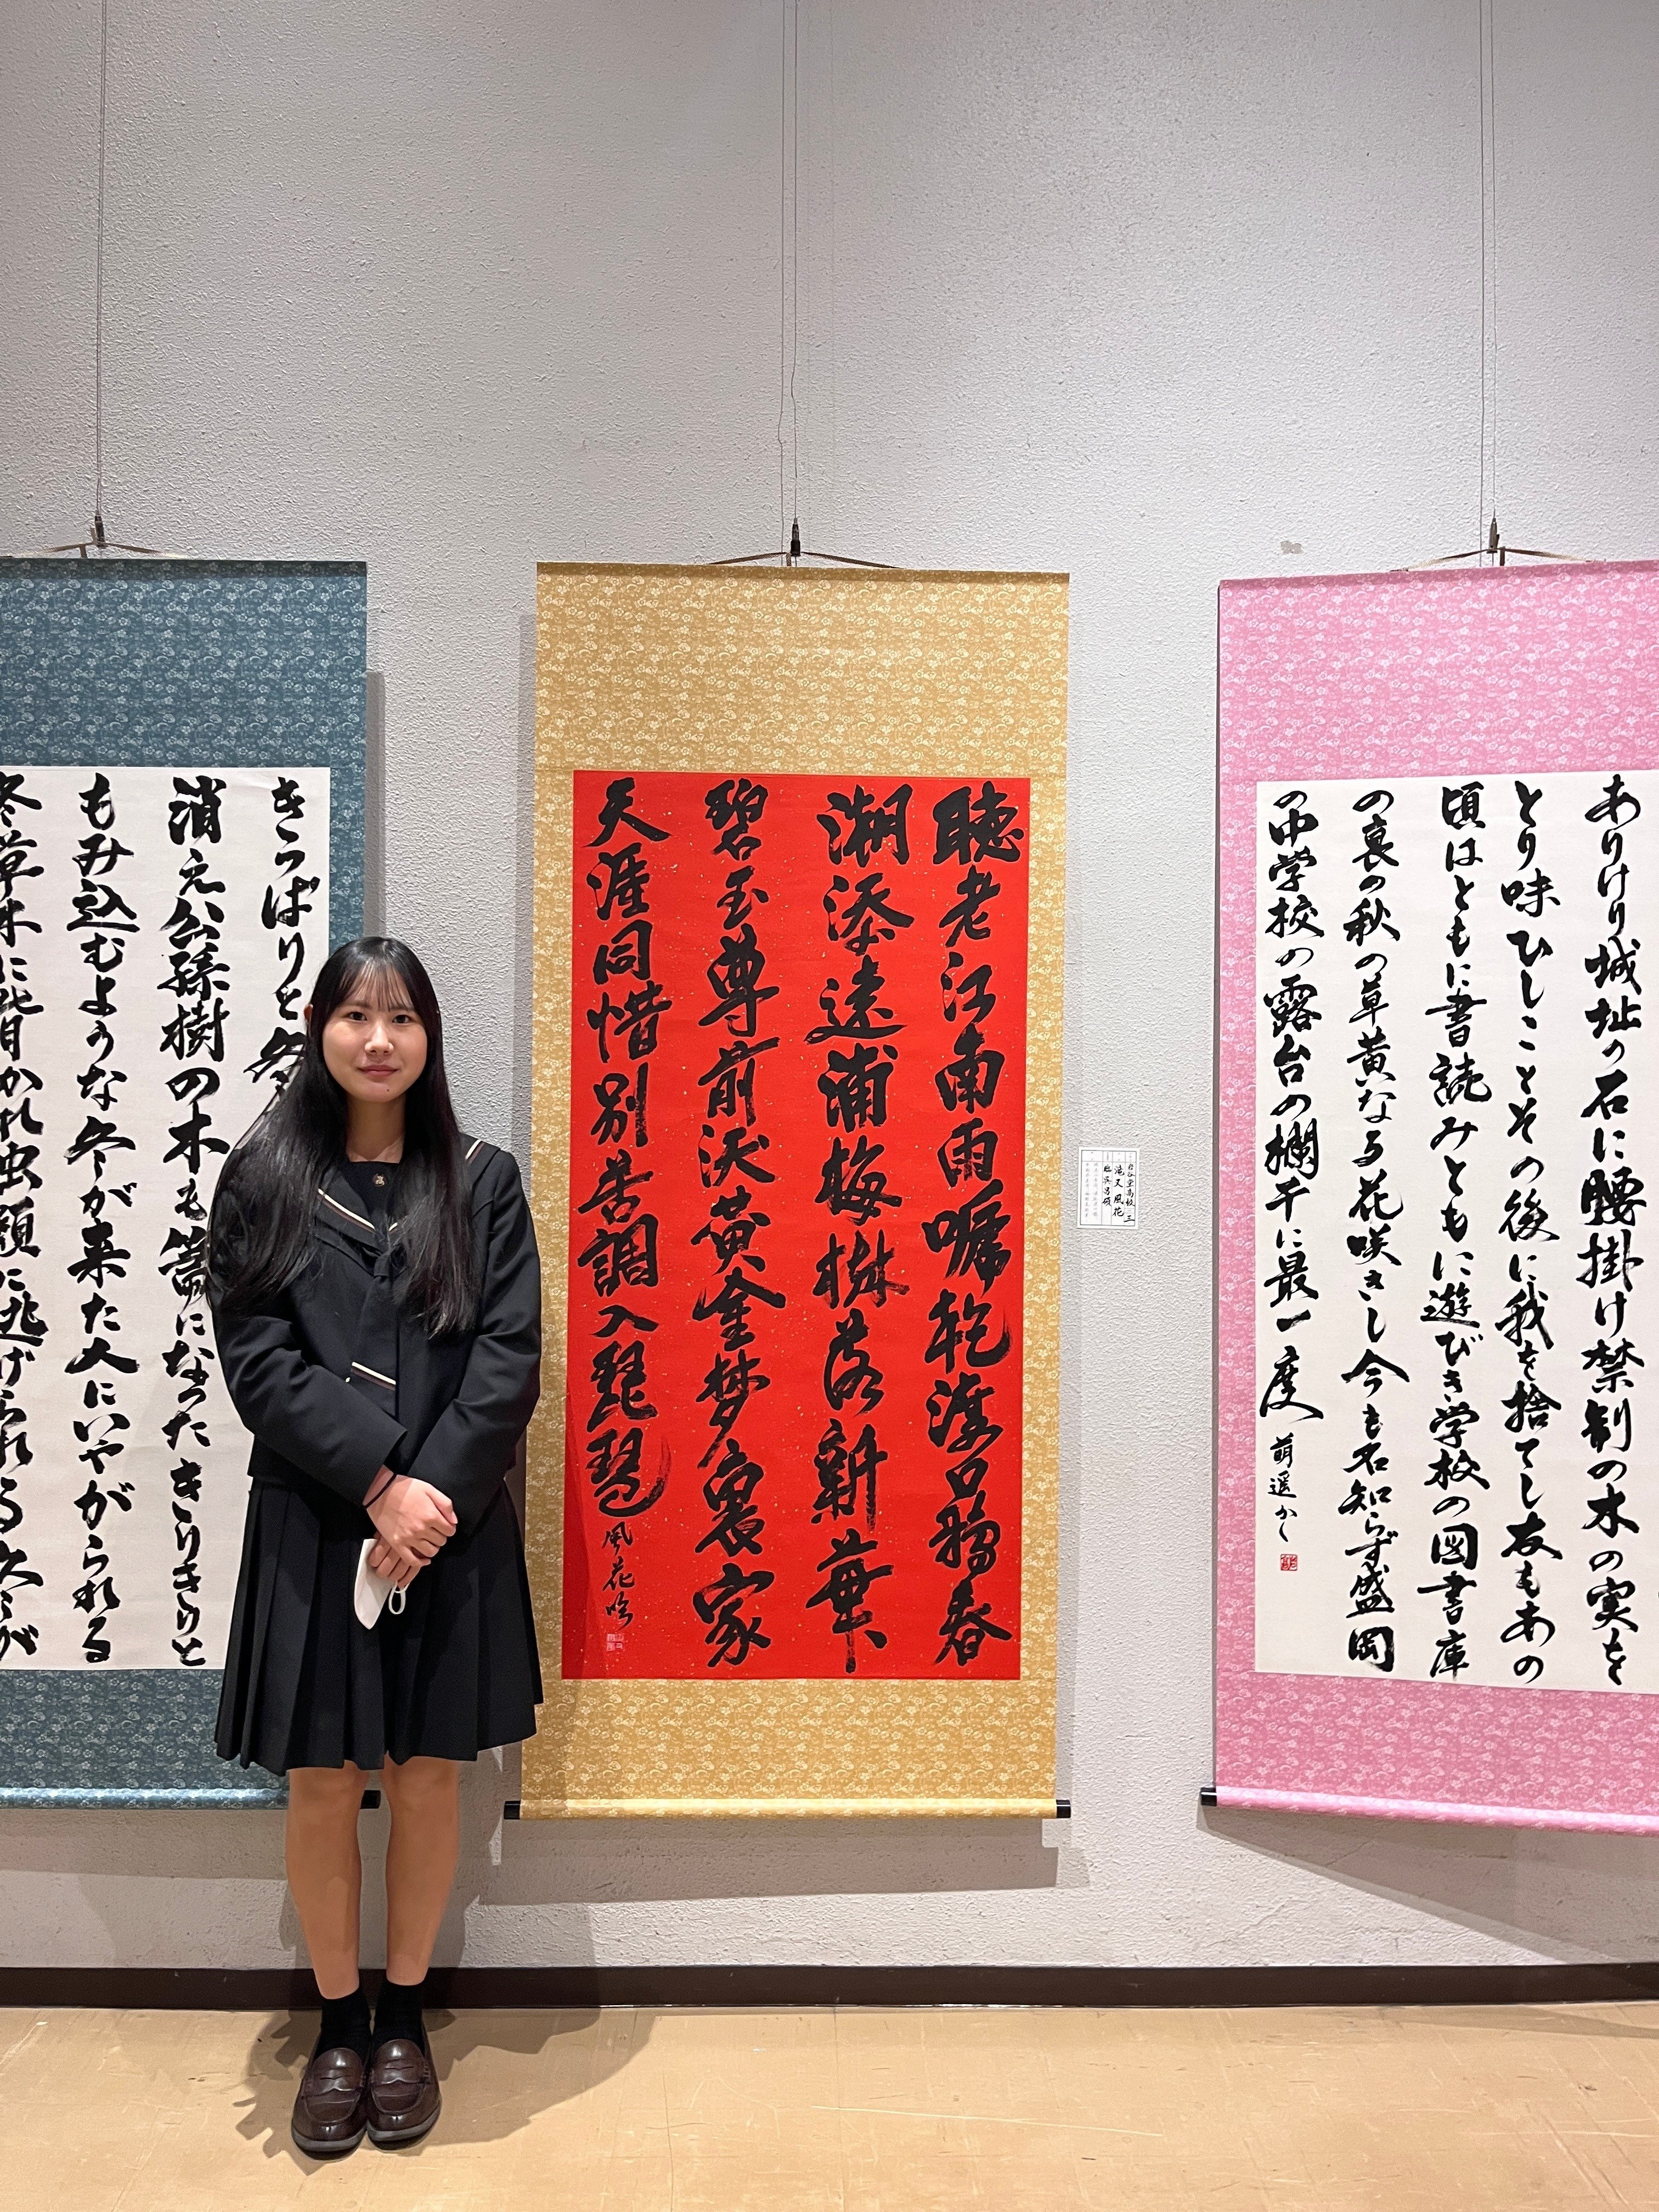 ありけり城址の石に腰掛け禁制の木の実を
とり味ひしことその後に我を捨てし友もあの
頃はともに書読みともに遊びき学校の図書庫
の裏の秋の草黄なる花咲きし今も名知らず盛岡
の中学校の露台の欄干に最一度 萌遥かく
岩谷堂高校 三
滝又風花
臨呉昌碩
聴老江南雨乾口春
潮添遠浦梅樹落新華
碧玉尊前黄金夢裏家
天涯同惜別苦調入琵琶 風花吟
きっぱりと冬
消え公孫樹の木も箒になったきりきりと
もみ込むような冬が来た人にいやがられる
冬草木に背かれ虫類に逃げられる冬が